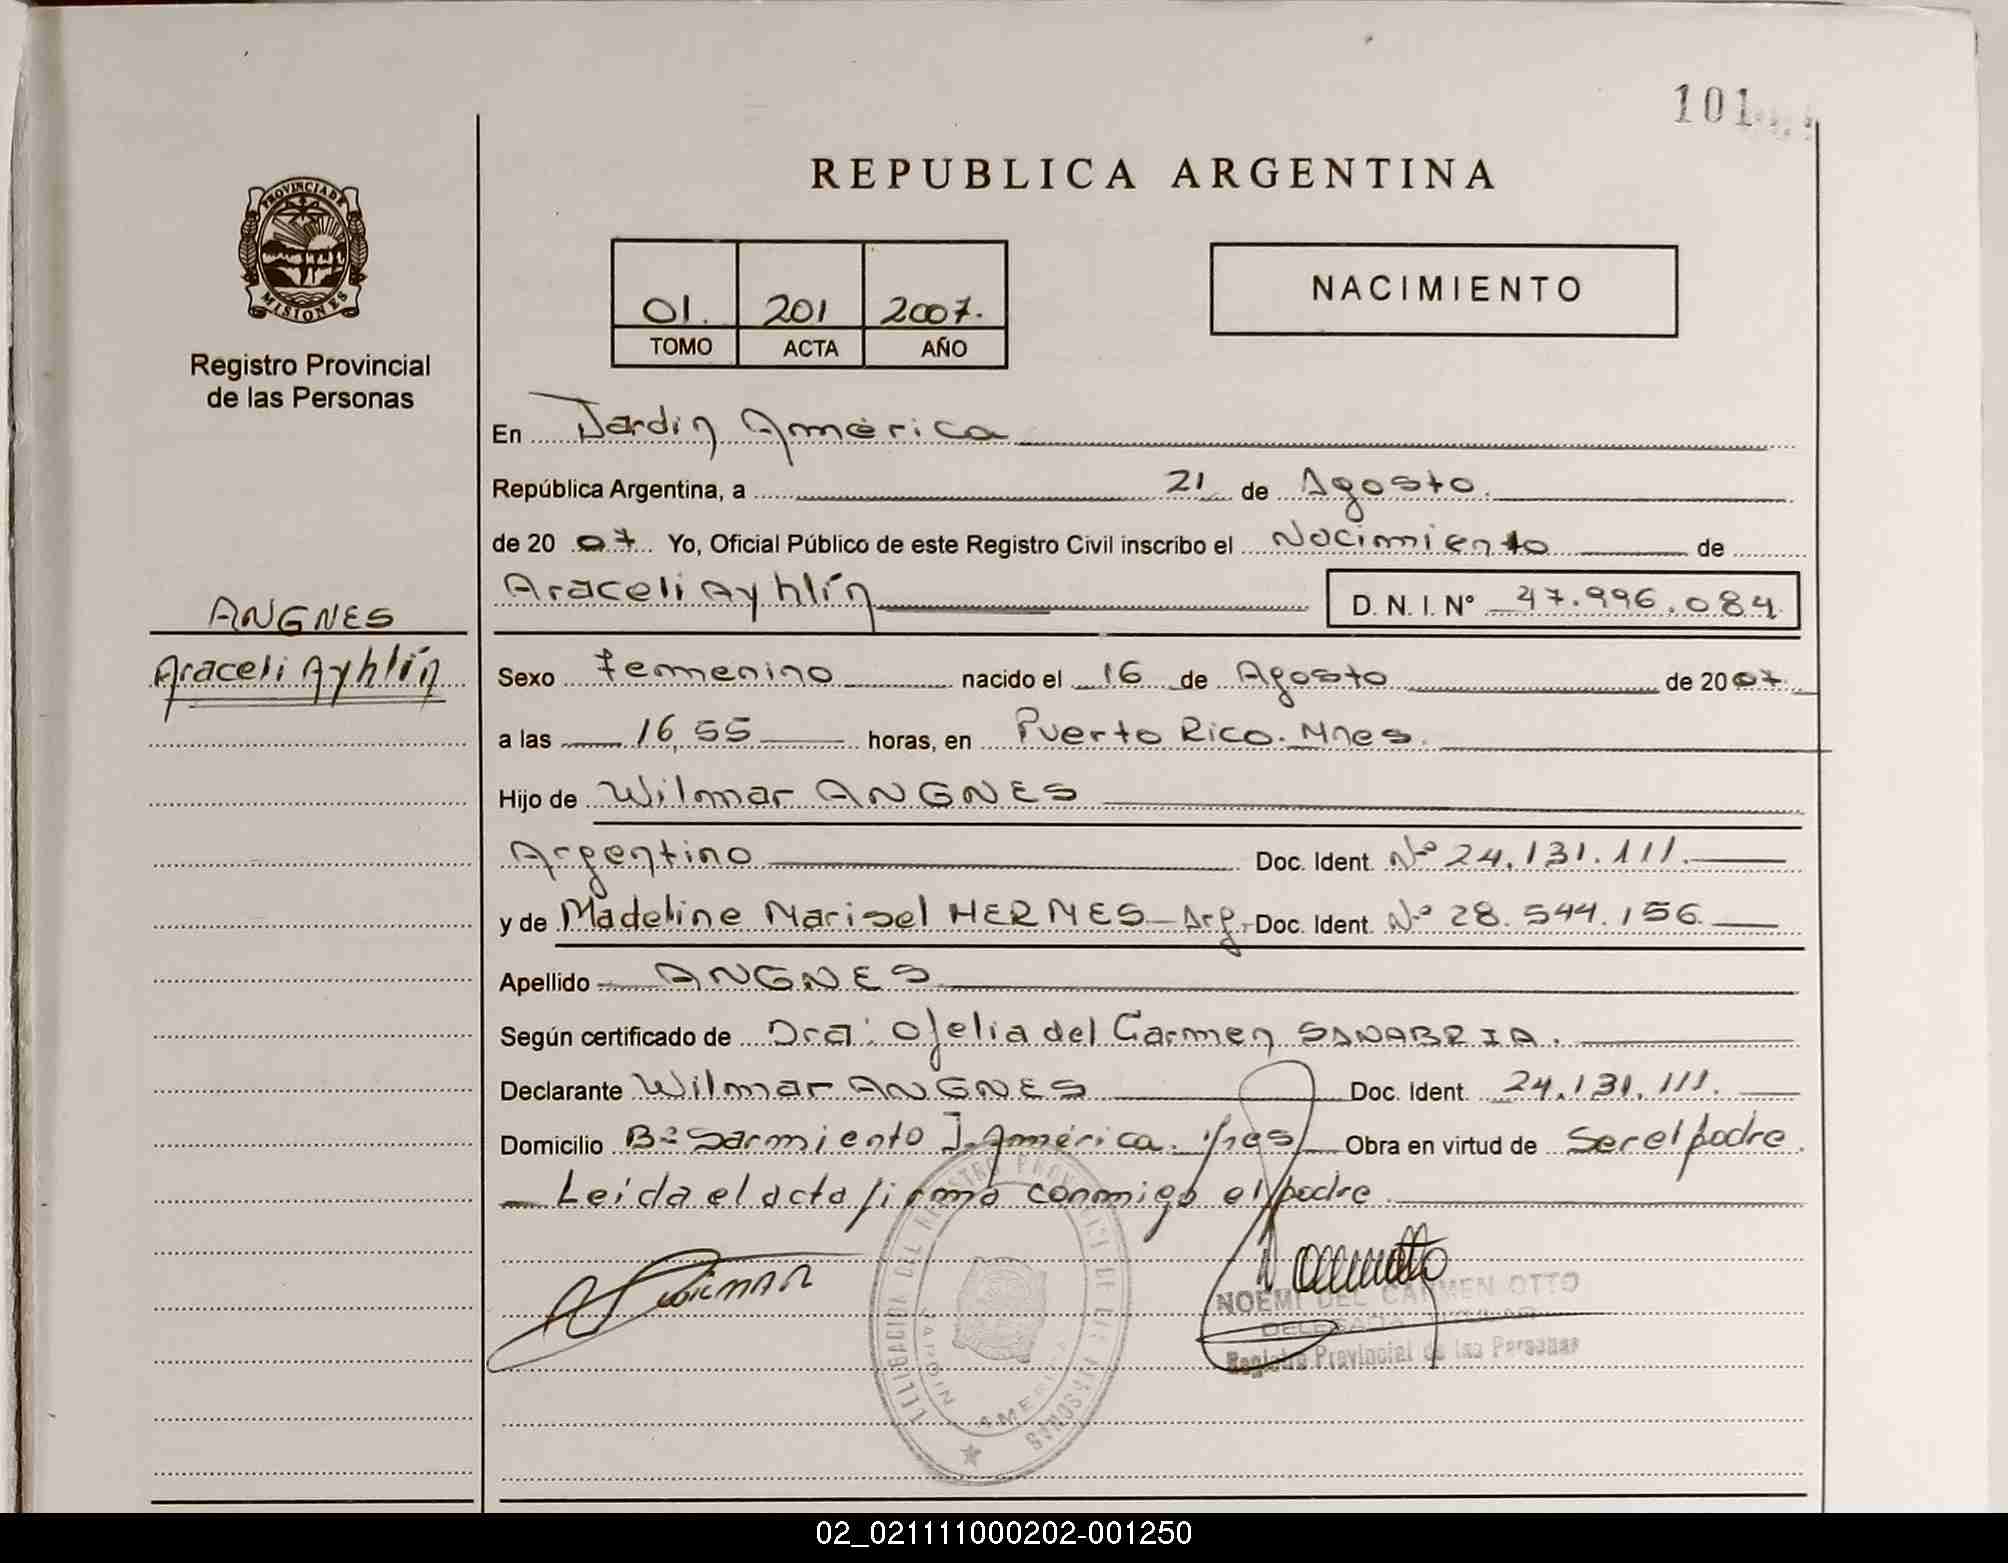 101
PROVINCIA DE
MISIONES
Registro Provincial
de las Personas
REPUBLICA ARGENTINA
01. 201 2007.
TOMO ACTA AÑO
NACIMIENTO
En Jardín América
República Argentina, a 21 de Agosto.
de 20 07 Yo, Oficial Público de este Registro Civil inscribo el Nacimiento de
Araceli Ayhlín D. N. I. N° 47.996.084
ANGNES
Araceli Ayhlín
Sexo femenino nacido el 16 de Agosto de 2007.
a las 16,55 horas, en Puerto Rico. Mnes.
Hijo de Wilmar ANGNES
Argentino Doc. Ident. Nº 24.131.111.
y de Madeline Marisel HERMES - Arg. Doc. Ident. Nº 28.544.156
Apellido ANGNES
Según certificado de Dra: Ofelia del Carmen SANABRIA.
Declarante Wilmar ANGNES Doc. Ident. 24.131.111.
Domicilio Bº Sarmiento J. América. Mnes Obra en virtud de Ser el padre.
Leída el acta firma conmigo el padre.
WILMAR
NOEMI DEL CARMEN OTTO
DELEGADA TITULAR
Registro Provincial de las Personas
DELEGACION DEL REGISTRO PROVINCIAL DE LAS PERSONAS
JARDIN AMERICA
02_021111000202-001250